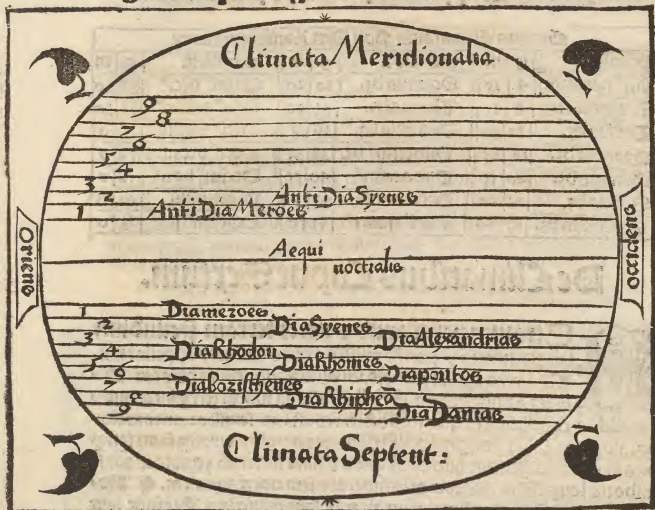 Climata Meridionalia
9
8
7
6
5
4
3
2 AntiDiaSyenes
1 AntiDiaMeroes
Oriens
Occidens
Aequi
noctialis
1 Diameroes
2 DiaSyenes
3 DiaAlexandrias
4 DiaRhodon
5 DiaRhomes
6 Diapontos
7 DiaBoristhenes
8 DiaRhiphea
9 DiaDanias
Climata Septent: